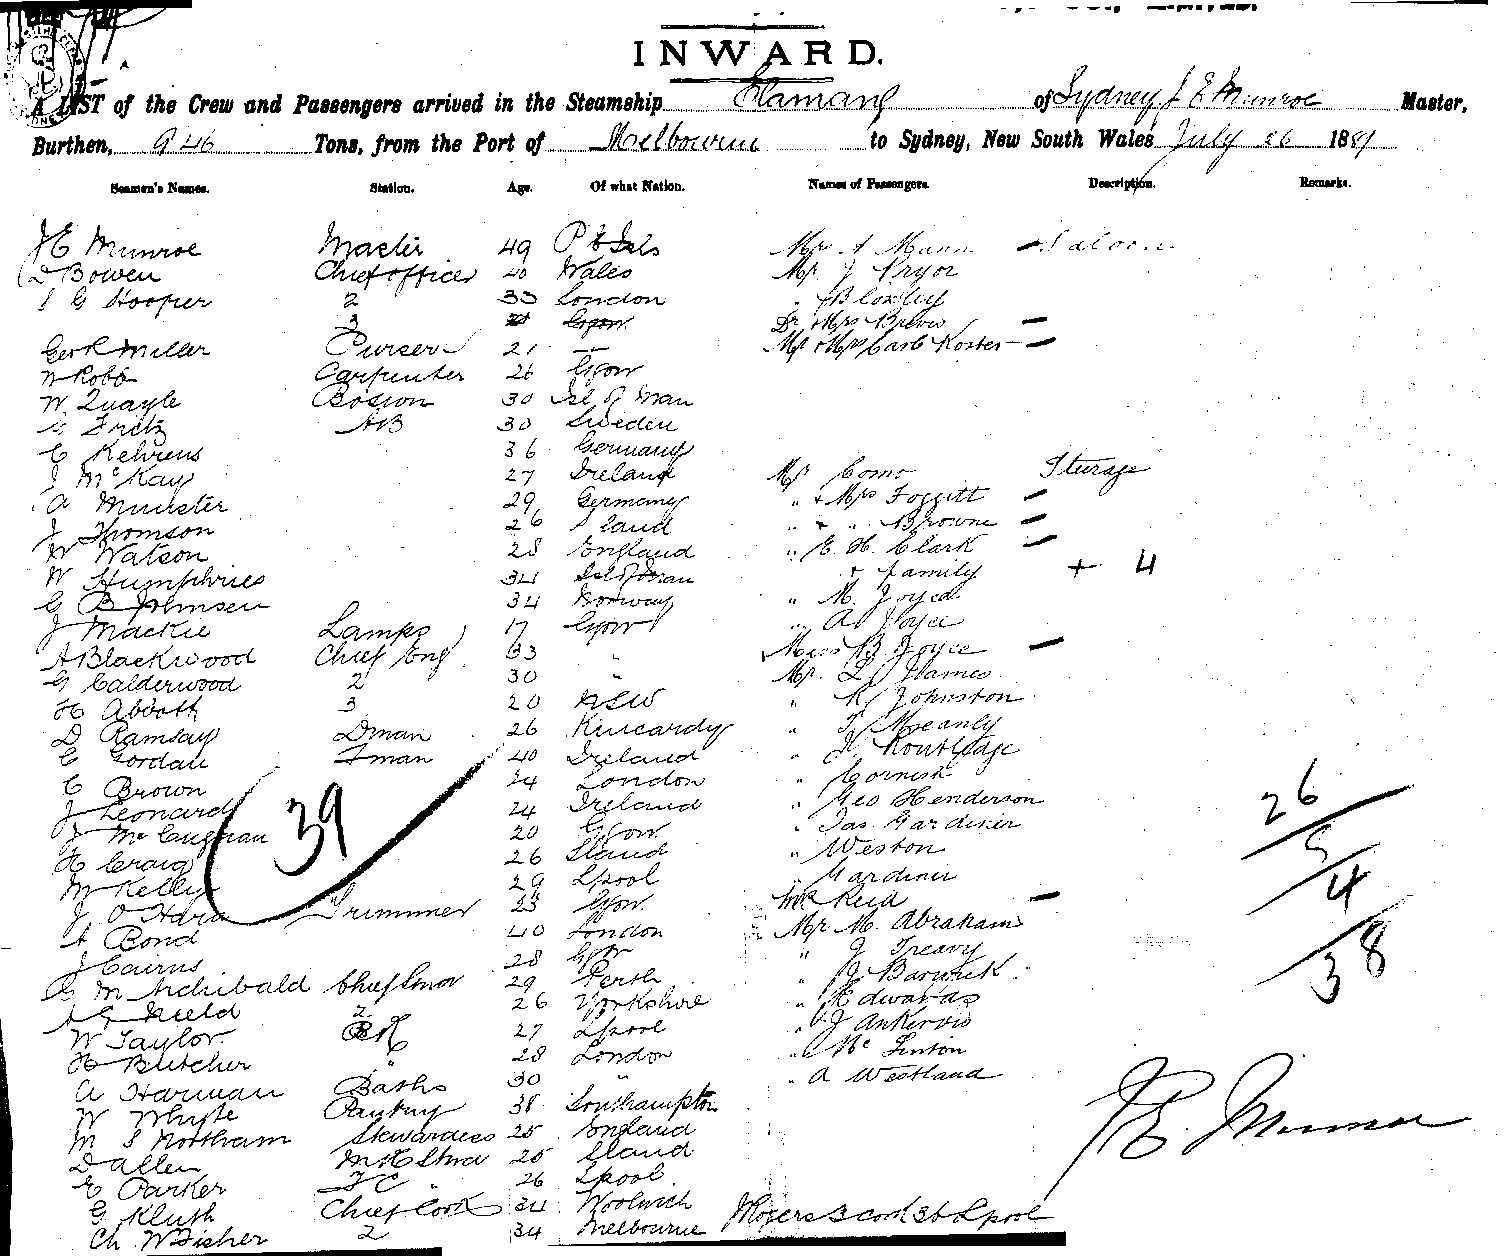 INWARD.
A LIST of the Crew and Passengers arrived in the Steamship Elamang of Sydney J E Munroe Master,
Burthen, 946 Tons, from the Port of Melbourne to Sydney, New South Wales July 26 1881
Seamen's Names. Station. Age. Of what Nation. Names of Passengers. Description. Remarks.
J E Munroe Master 49 P E Isls Mr A Mann - Saloon
D Bowen Chief officer 40 Wales Mr J Pryor
S G Hooper 2 33 London " Bloxley
3 Gow Dr & Mrs Brevis -
Geo R Miller Purser 21 — Mr & Mrs Carl Koster -
W Robb Carpenter 26 Gow
W. Quayle Bosion 30 Isl of Man
G Fritz AB 30 Sweden
C Kehrens 36 Germany
J McKay 27 Ireland Mr Como Sturage
A Munster 29 Germany " & Mrs Foggitt -
J Thomson 26 Sland " & " Browne -
W Watson 28 England " E. H. Clark -
W Humphries 34 Isl of Man & family + 4
C B Johnsen 34 Norway " M. Joyce
J Mackie Lamps 17 Gow " A Joyce
A Blackwood Chief Eng 33 " Miss B Joyce -
G Calderwood 2 30 " Mr. L James
H Abbott 3 20 NSW " R Johnston
D Ramsay Dman 26 Kincardy " T Meanly
C Gordau Fman 40 Ireland " H Routledge
C Brown 24 London " Cornish
J Leonard 24 Ireland " Geo Henderson
J McCugnan 20 Gow " Jas. Gardiner
39
26
H Craig 26 Sland " Weston
5
M Kelly 29 Lpool " Gardiner
4
J O'Hara Trimmer 23 Gow Mr Reid -
A Bond 40 London Mr M. Abraham
38
J Cairns 28 Gow " J Treavy
C M Archibald Chief Stwd 29 Perth " J Barwick
A G Field 2 26 Yorkshire " Edwards
W Taylor BR 27 Lpool " J Ankervis
H Butcher " 28 London " Mc Linton
A Harman Baths 30 " " A Westland
W Whyte Pantry 38 Southampton
J E. Munroe
M S Northam Stewardess 25 England
D Allen 25 Sland
E Parker FC " 26 Lpool
G Klush Chief Cook 34 Woolwich
Ch. W Fisher 2 34 Melbourne Rogers 3 cook 36 Lpool